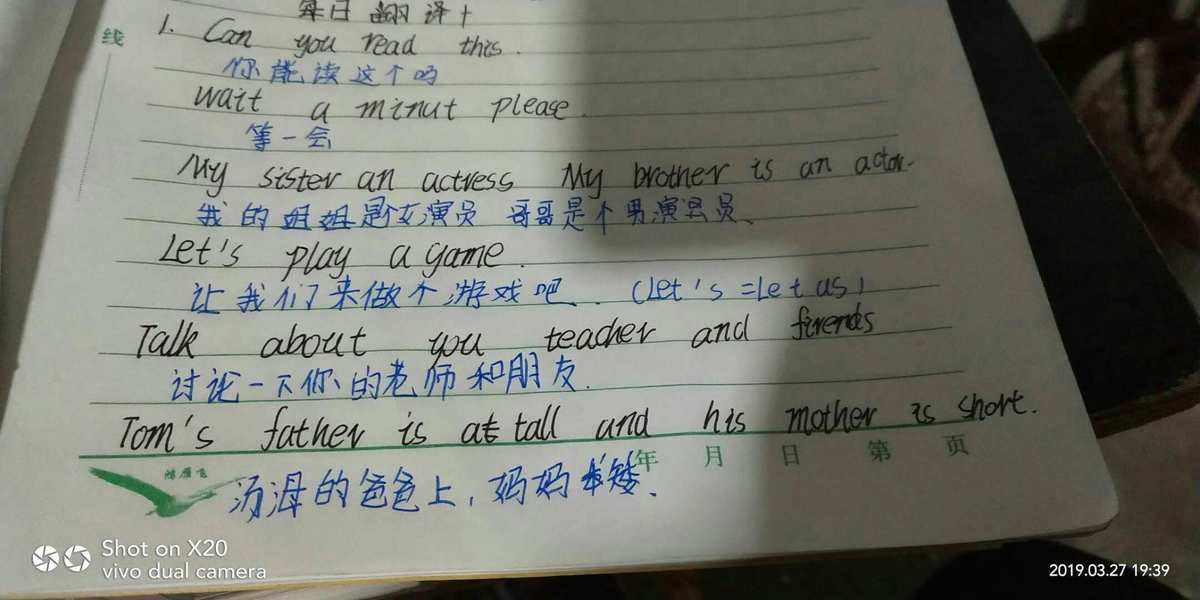 每日翻译十
线
1. Can you read this.
你能读这个吗
wait a minut please.
等一会
My sister an actress My brother is an actor.
我的姐姐是个女演员 哥哥是个男演员、
Let's play a game.
让我们来做个游戏吧.. (Let's=Let us)
Talk about you teacher and firends
讨论一下你的老师和朋友.
Tom's father is at tall and his mother is short.
年 月 日 第 页
汤姆的爸爸上,妈妈 矮、
Shot on X20
vivo dual camera
2019.03.27 19:39